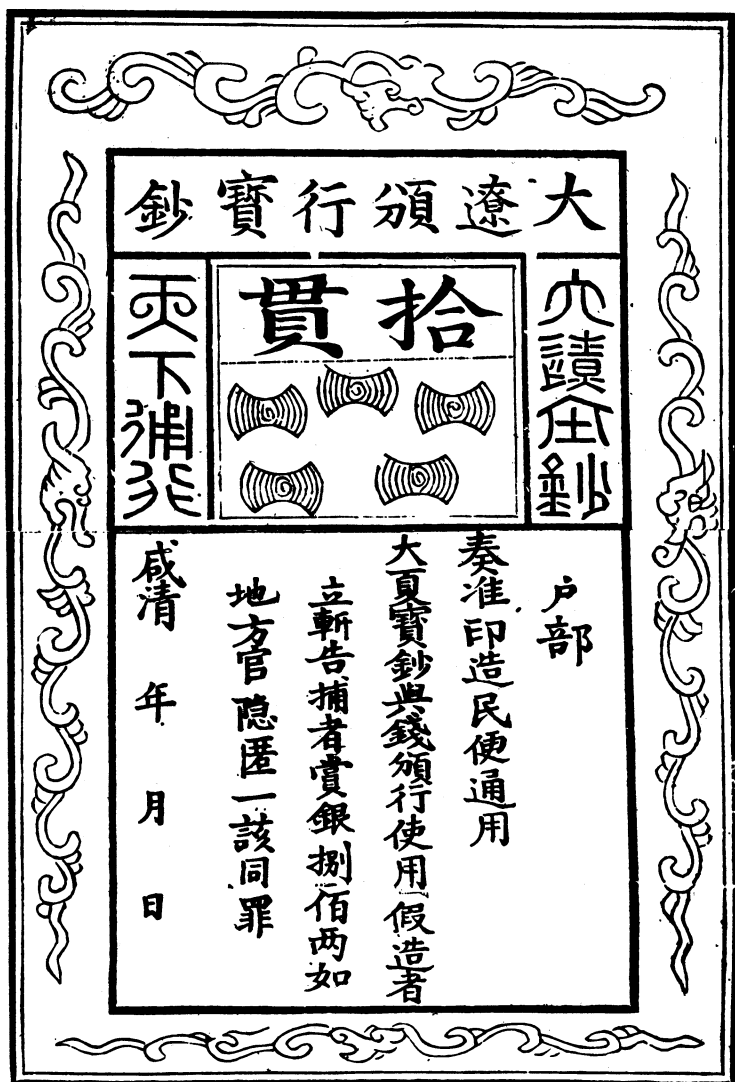 大遼頒行寶鈔
拾貫
天下通行
户部
奏准印造民便通用
大夏寶鈔與錢頒行使用假造者
立斬告捕者賞銀捌佰两如
地方官隐匿一該同罪
咸清 年 月 日